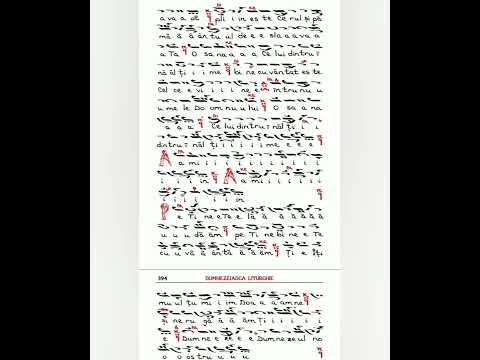 a va a ot pli i in es te Ce rul și pă
mâ â ân tu ul de e e sla a a va a
a Ta O sa na a a Ce lui din tru î
nă ăl ți i i me bi ne cu vân tat es te
Cel ce e vi i i i ne e în tru nu u
u me le Do om nu u lui O sa na
a a a Ce lui din tru î năl ți i i
din tru î năl ți i i i i i me e e a
A a mi i i i i i i
i i i i in A a mi i i i i
i i i i i i i in
P e Ti ne e Te e lă ă ă ă ă ă
u u u dăm pe Ti ne bi ne e Te
cu u vâ ân tă ă ă ăm Ți e Îți
394 DUMNEZEIASCA LITURGHIE
mu ul țu mi i im Doa a a am ne
și ne ru gă ă ă ăm ți i i i i
e Dum ne ze e e Dum ne ze ul no
o o os tru u u u